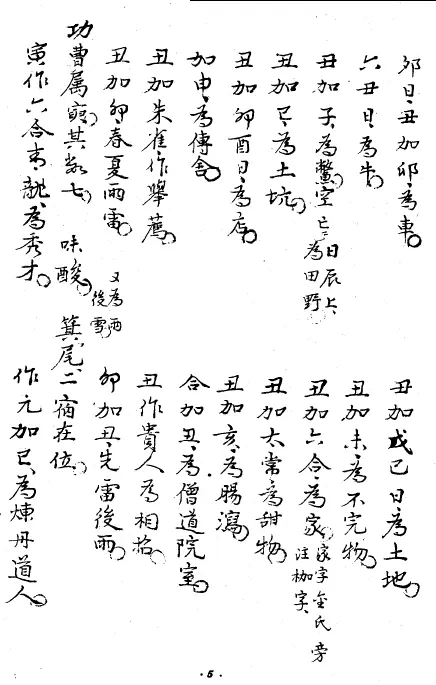 卯日丑加卯為車。
六丑日為牛
丑加子為鱉。空亡日辰上為田野。
丑加巳為土坑。
丑加卯酉日為店。
加申為傳舍。
丑加朱雀作舉薦。
丑加卯春夏雨雷。又為雨後雪。
功曹屬寅其數七。味酸。箕尾二宿在位。
寅作六合青龍為秀才。
丑加戊己日為土地。
丑加未為不完物。
丑加六合為家。家字金氏旁注枷字
丑加太常為甜物。
丑加亥為腸瀉。
合加丑為僧道院室。
丑作貴人為相招。
卯加丑先雷後雨。
作元加巳為煉丹道人。
·5·